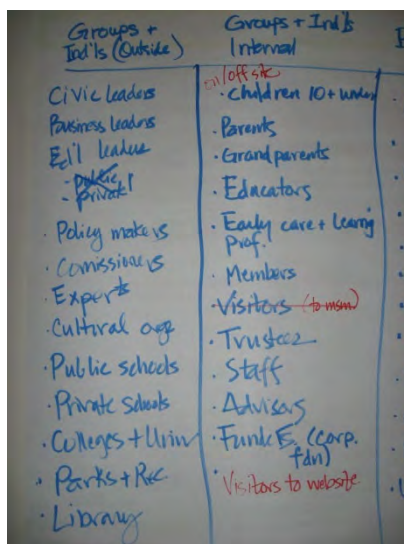 Groups +
Ind'ls (Outside)
Civic leaders
Business leaders
Ed'l leaders
- public
- private
· Policy makers
· Comissioners
· Experts
· Cultural orgs
· Public schools
· Private Schools
· Colleges + Univ
· Parks + Rec
· Library
Groups + Ind'ls
Internal
on/off site
· Children 10 + under
· Parents
· Grandparents
· Educators
· Early care + Learning
Prof.
· Members
· Visitors (to msm)
· Trustees
· Staff
· Advisors
· Funders (Corp.
fdn)
· Visitors to website